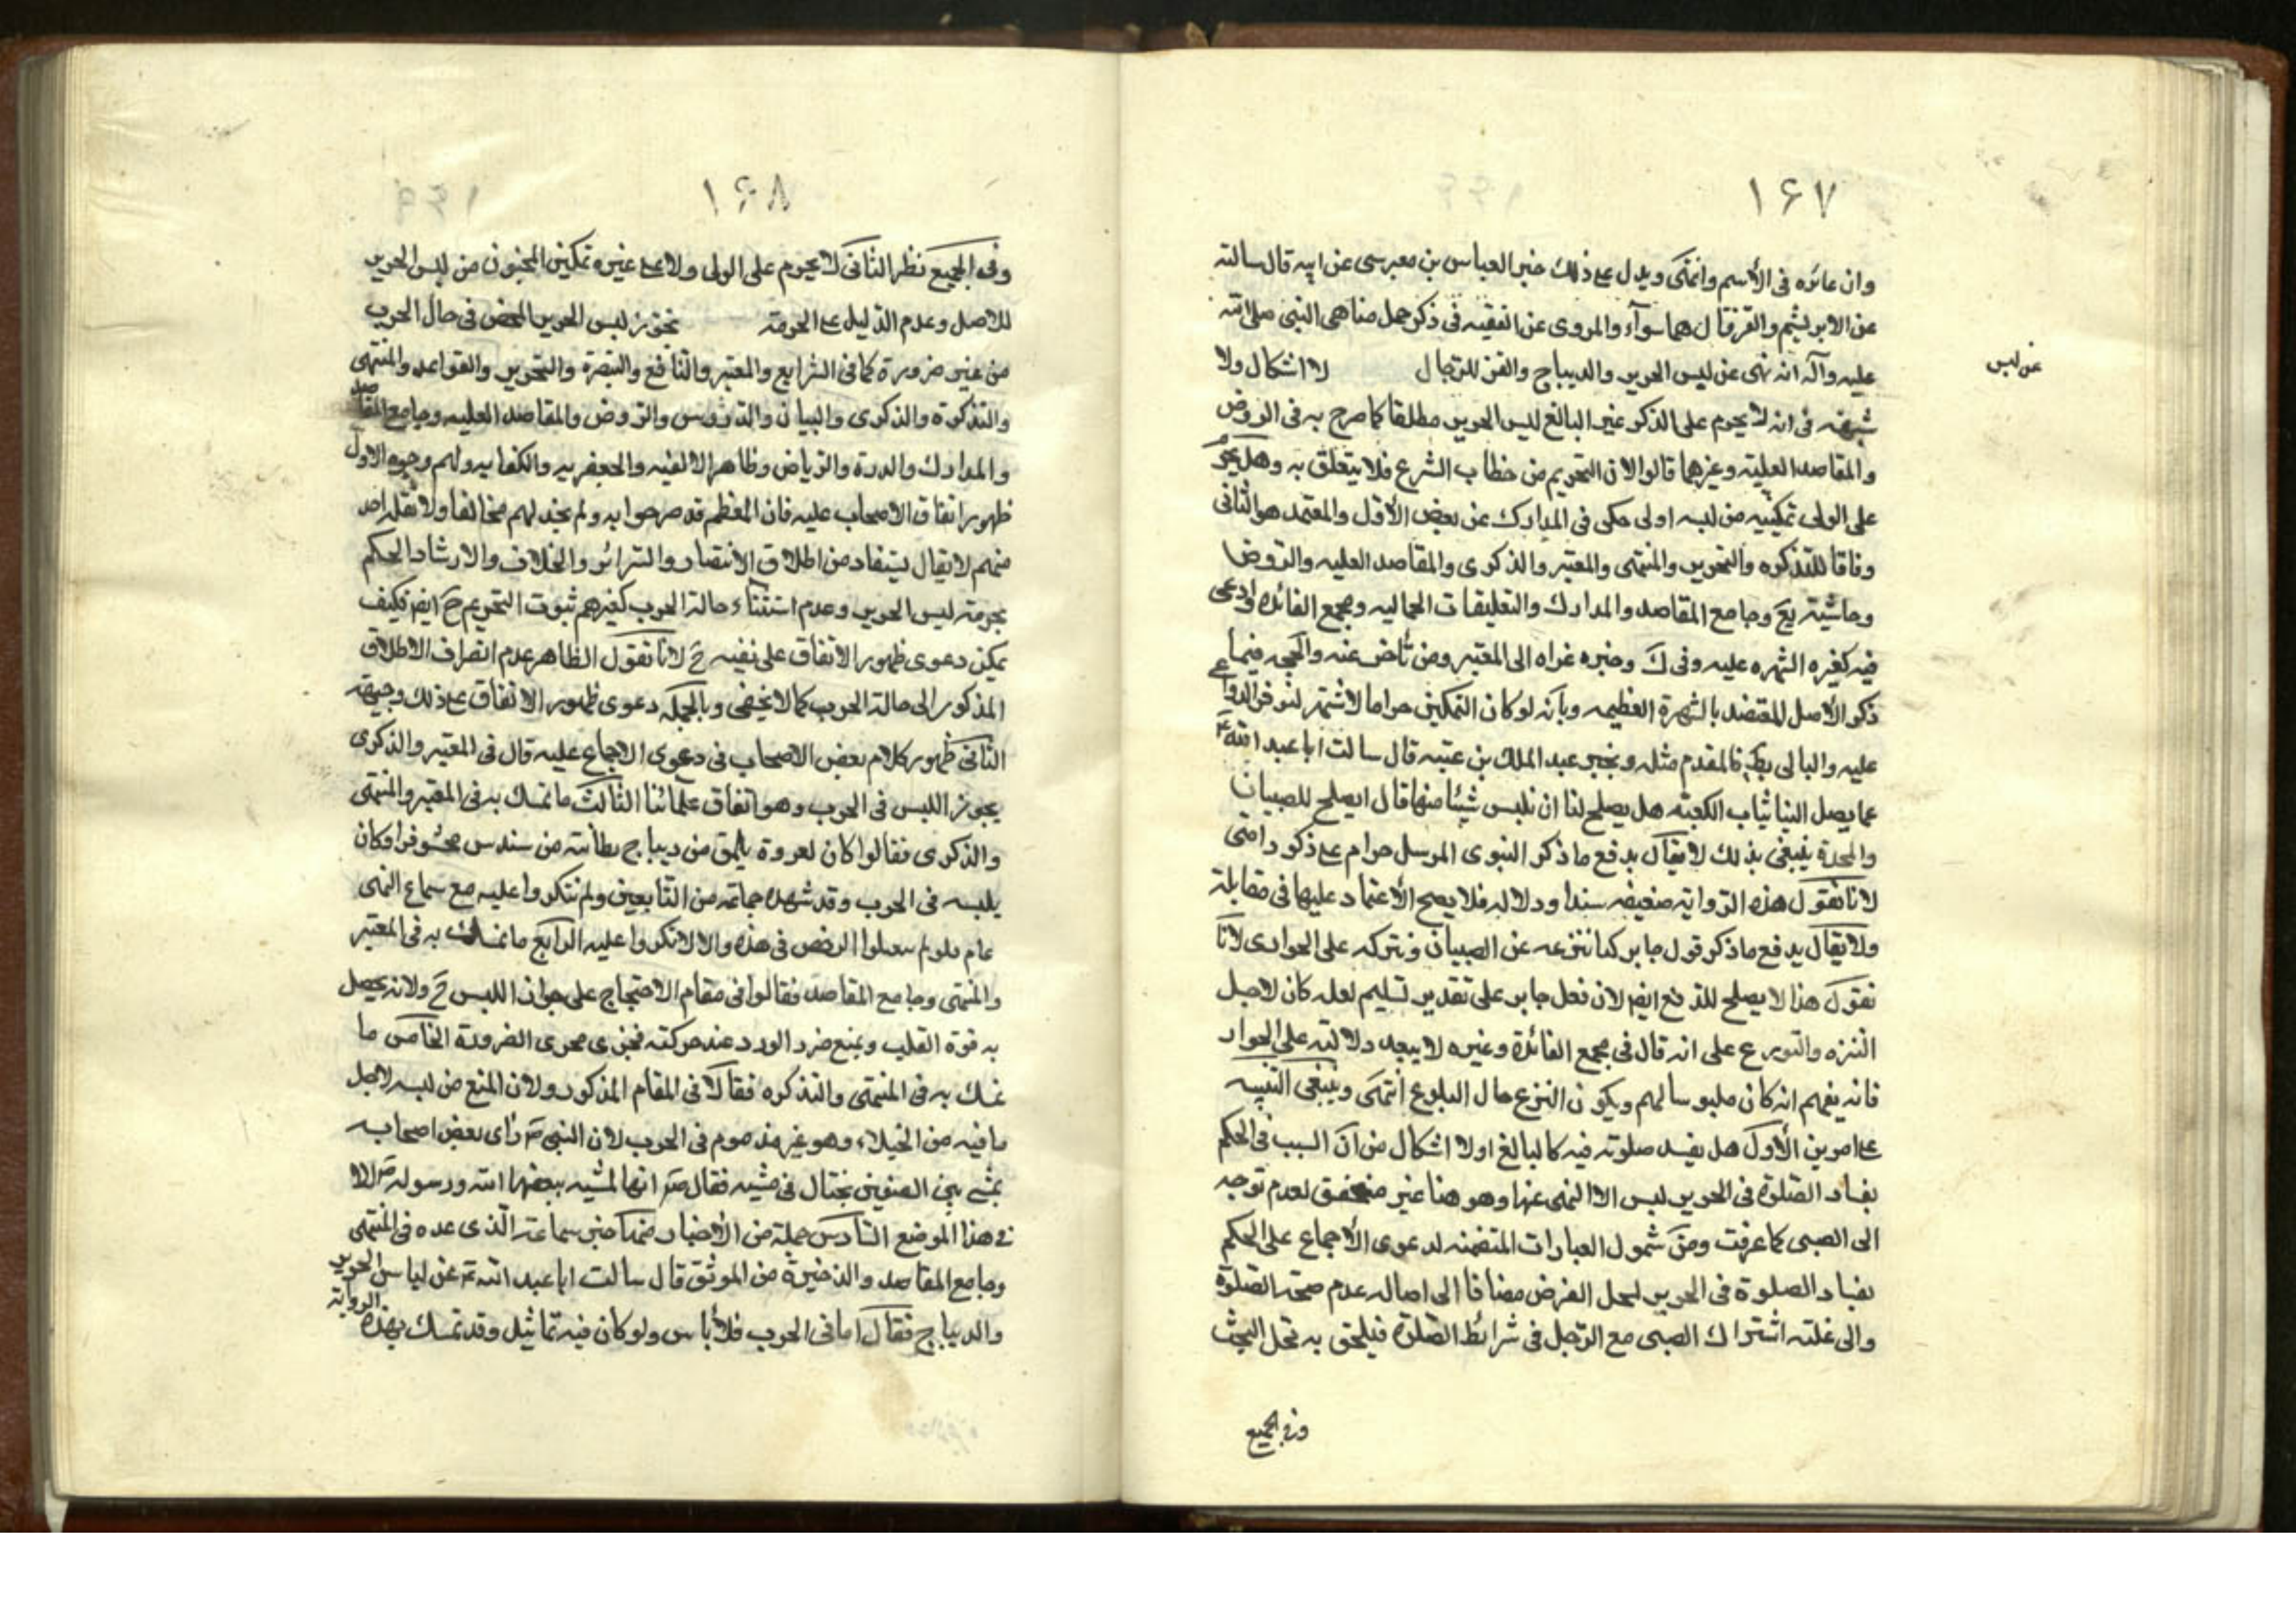 ١۶٧
وان عائره في الاسم وانتهى ويدل على ذلك خبر العباس بن موسى عن ابيه قال سالته
عن الابريشم والقز قال هما سوآء والمروى عن الفقيه في ذكر جمل مناهى النبي صلى الله
عليه وآله انه نهى عن لبس الحرير والديباج والقز للرجال لا اشكال ولا
عن لبس
شبهة في انه لا يحرم على الذكر غير البالغ لبس الحرير مطلقا كما صرح به في الروض
والمقاصد العلية وغيرهما قالوا لان التحريم من خطاب الشرع فلا يتعلق به وهل يحرم
على الولى تمكينه من لبسه اولى حكى في المدارك عن بعض الاول والمعتمد هو الثانى
وفاقا للتذكره والتحرير والمنتهى والمعتبر والذكرى والمقاصد العليه والروض
وحاشية يع وجامع المقاصد والمدارك والتعليقات الجماليه ومجمع الفائدة وادعى
فيه كغيره الشهره عليه وفي ك وخبره عزاه الى المعتبر ومن تأخر عنه والحجه فيما
ذكر الاصل المعتضد بالشهرة العظيمه وبأنه لو كان التمكين حراما لاشتهر لتوفر الدواعى
عليه والتالى بط فالمقدم مثله وبخبر عبد الملك بن عتبه قال سالت ابا عبد الله ع
عما يصل الينا ثياب الكعبة هل يصلح لنا ان نلبس شيئا منها قال ايصلح للصبيان
والمخدة ينبغى بذلك لا يقال يدفع ما ذكر النبوى المرسل حرام على ذكور امتى
لانا نقول هذه الرواية ضعيفه سندا ودلاله فلا يصح الاعتماد عليها في مقابلة
ولا يقال يدفع ما ذكر قول جابر كنا ننزعه عن الصبيان ونتركه على الجوارى لانا
نقول هذا لا يصلح للدفع ايضا لان فعل جابر على تقدير تسليم لعله كان لاجل
التنزه والتورع على انه قال في مجمع الفائدة وغيره لا يبعد دلالته على الجواز
فانه يفهم انه كان ملبوسا لهم ويكون النزع حال البلوغ انتهى وينبغى التنبيه
على امرين الاول هل يفسد صلوته فيه كالبالغ اولا اشكال من ان السبب في الحكم
بفساد الصلوة في الحرير ليس الا النهى عنها وهو هنا غير متحقق لعدم توجه
الى الصبى كما عرفت ومن شمول العبارات المتضمنه لدعوى الاجماع على الحكم
بفساد الصلوة في الحرير لمحل الفرض مضافا الى اصاله عدم صحة الصلوة
والى غلبته اشتراك الصبى مع الرجل في شرائط الصلوة فيلحق به محل البحث
وفي الجميع
١۶٨
وفي الجميع نظر الثانى لا يحرم على الولى ولا على غيره تمكين المجنون من لبس الحرير
للاصل وعدم الدليل على الحرمة يجوز لبس الحرير المحض في حال الحرب
من غير ضرورة كما في الشرايع والمعتبر والنافع والتبصرة والتحرير والقواعد والمنتهى
والتذكرة والذكرى والبيان والدروس والروض والمقاصد العليه وجامع المقاصد
والمدارك والدرة والرياض وظاهر الالفيه والجعفريه والكفايه ولهم وجوه الاول
ظهور اتفاق الاصحاب عليه فان المعظم قد صرحوا به ولم نجد لهم مخالفا ولا نقله احد
منهم لا يقال يستفاد من اطلاق الانتصار والسرائر والخلاف والارشاد الحكم
بحرمة لبس الحرير وعدم استثناء حالة الحرب كغيرهم ثبوت التحريم ح ايضا فكيف
يمكن دعوى ظهور الاتفاق على نفيه ح لانا نقول الظاهر عدم انصراف الاطلاق
المذكور الى حالة الحرب كما لا يخفى وبالجمله دعوى ظهور الاتفاق على ذلك وجيهة
الثانى ظهور كلام بعض الاصحاب في دعوى الاجماع عليه قال في المعتبر والذكرى
يجوز اللبس في الحرب وهو اتفاق علمائنا الثالث ما تمسك به في المعتبر والمنتهى
والذكرى فقالوا كان لعروة يلمق من ديباج بطانته من سندس محشو فزا وكان
يلبسه في الحرب وقد شهده جماعة من التابعين ولم ينكروا عليه مع سماع النهى
عام فلو لم يعملوا الرخص في هذه والا لانكروا عليه الرابع ما تمسك به في المعتبر
والمنتهى وجامع المقاصد فقالوا في مقام الاحتجاج على جواز اللبس ح ولانه يحصل
به قوة القلب ويمنع ضرر الورد عند حركته فجرى مجرى الضرورة الخامس ما
تمسك به في المنتهى والتذكره فقالا في المقام المذكور ولان المنع من لبسه لاجل
ما فيه من الخيلاء وهو غير مذموم في الحرب لان النبى ص رأى بعض اصحابه
يمشى بين الصفين يختال في مشيه فقال ص انها لمشيه يبغضها الله ورسوله ص الا
في هذا الموضع السادس جملة من الاخبار منها خبر سماعة الذى عده في المنتهى
وجامع المقاصد والذخيرة من الموثق قال سالت ابا عبد الله ع عن لباس الحرير
والديباج فقال اما في الحرب فلا بأس ولو كان فيه تماثيل وقد تمسك بهذه الرواية